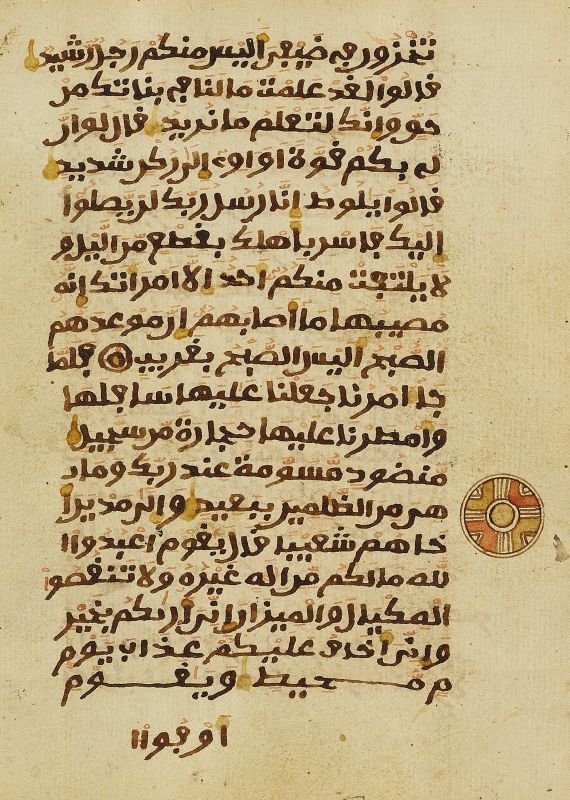 تخزون في ضيفي اليس منكم رجل رشيد
قالوا لقد علمت ما لنا في بناتك من
حق وانك لتعلم ما نريد قال لو ان
لي بكم قوة او اوي الى ركن شديد
قالوا يلوط انا رسل ربك لن يصلوا
اليك فاسر باهلك بقطع من اليل و
لا يلتفت منكم احد الا امراتك انه
مصيبها ما اصابهم ان موعدهم
الصبح اليس الصبح بقريب فلما
جا امرنا جعلنا عليها سافلها
وامطرنا عليها حجارة من سجيل
منضود مسومة عند ربك وما
هي من الظلمين ببعيد والى مدين ا
خاهم شعيبا قال يقوم اعبدوا ا
لله ما لكم من اله غيره ولا تنقصوا
المكيال والميزان اني اريكم بخير
واني اخاف عليكم عذاب يوم
محيط ويقوم
اوفوا ا